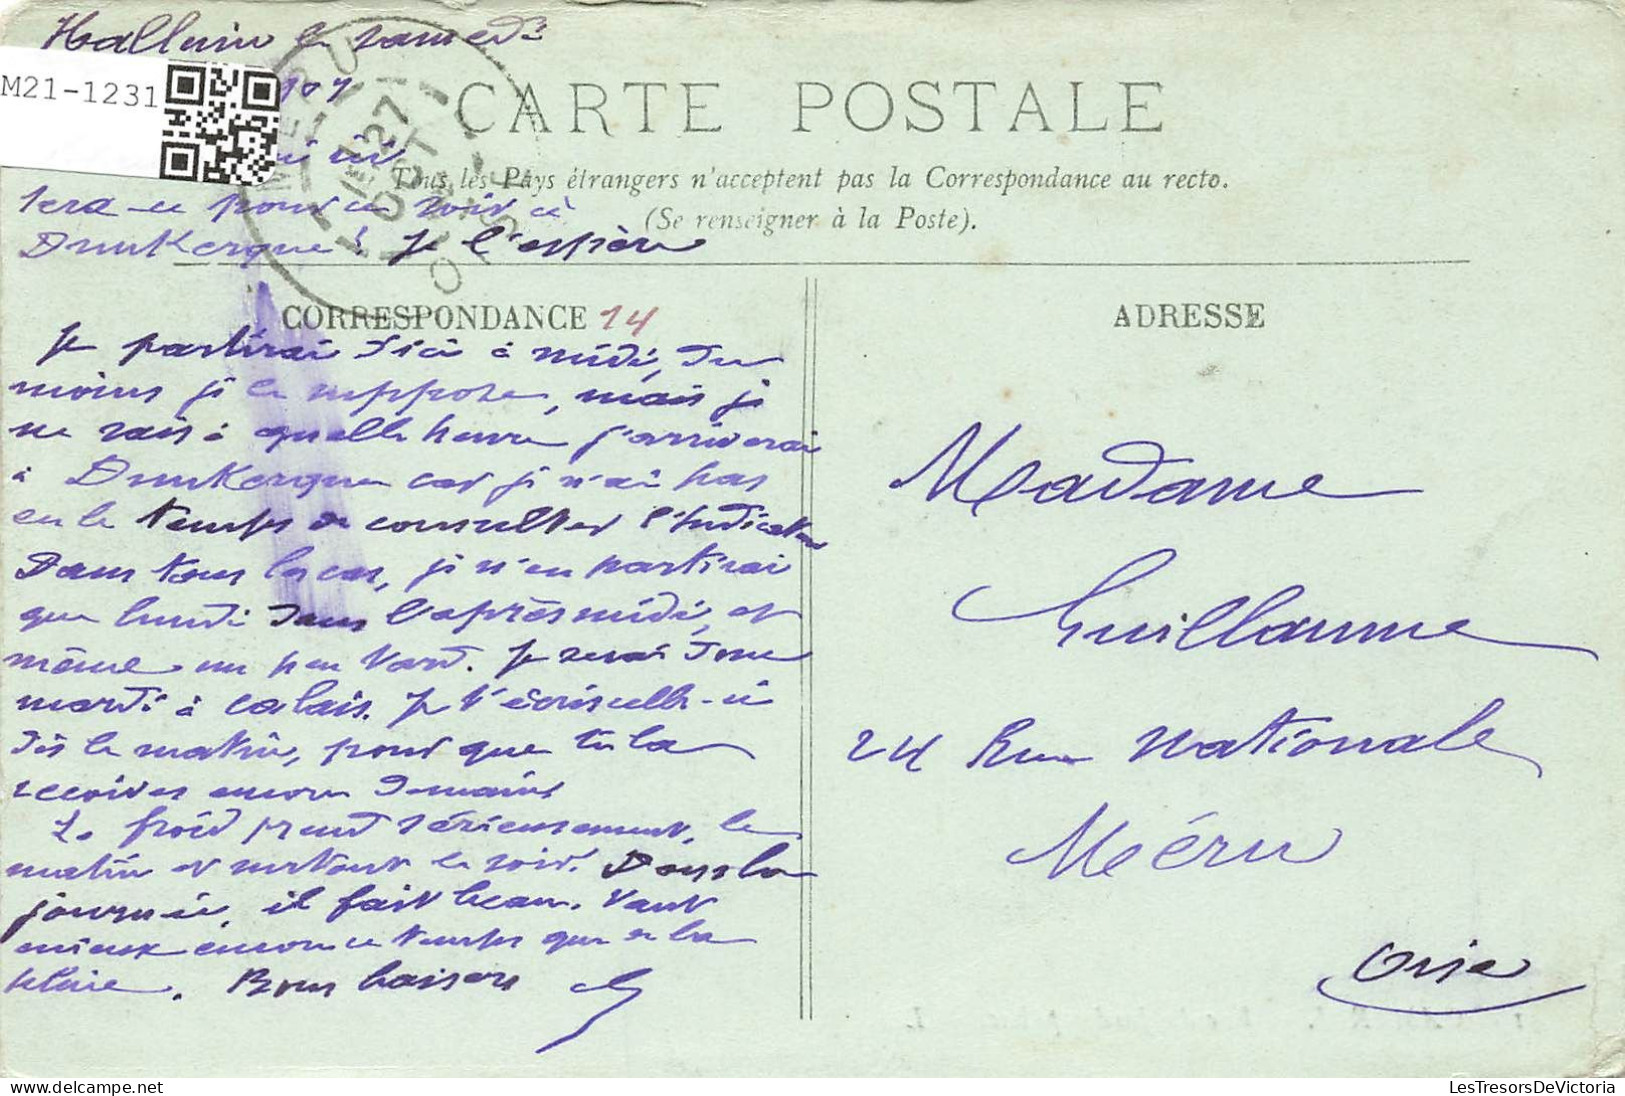 Halluin le samedi
M21-1231
CARTE POSTALE
Tous les Pays étrangers n'acceptent pas la Correspondance au recto.
(Se renseigner à la Poste).
sera-ce pour ce soir à
Dunkerque! Je l'espère
MÉRU
27
OCT
OISE
CORRESPONDANCE 14
Je partirai d'ici à midi, du
moins je le suppose, mais je
ne sais à quelle heure j'arriverai
à Dunkerque car je n'ai pas
eu le temps de consulter l'Indicateur
Dans tous les cas, je n'en partirai
que lundi dans l'après midi, et
même un peu tard. Je serai donc
mardi à Calais. Je t'écris celle-ci
dès le matin, pour que tu la
reçoives encore demain
Le froid prend sérieusement, le
matin et surtout le soir. Dans la
journée, il fait beau. Vaut
mieux encore ce temps que de la
pluie. Bons baisers
ADRESSE
Madame
Guillaume
24 Rue Nationale
Méru
Oise
LesTresorsDeVictoria